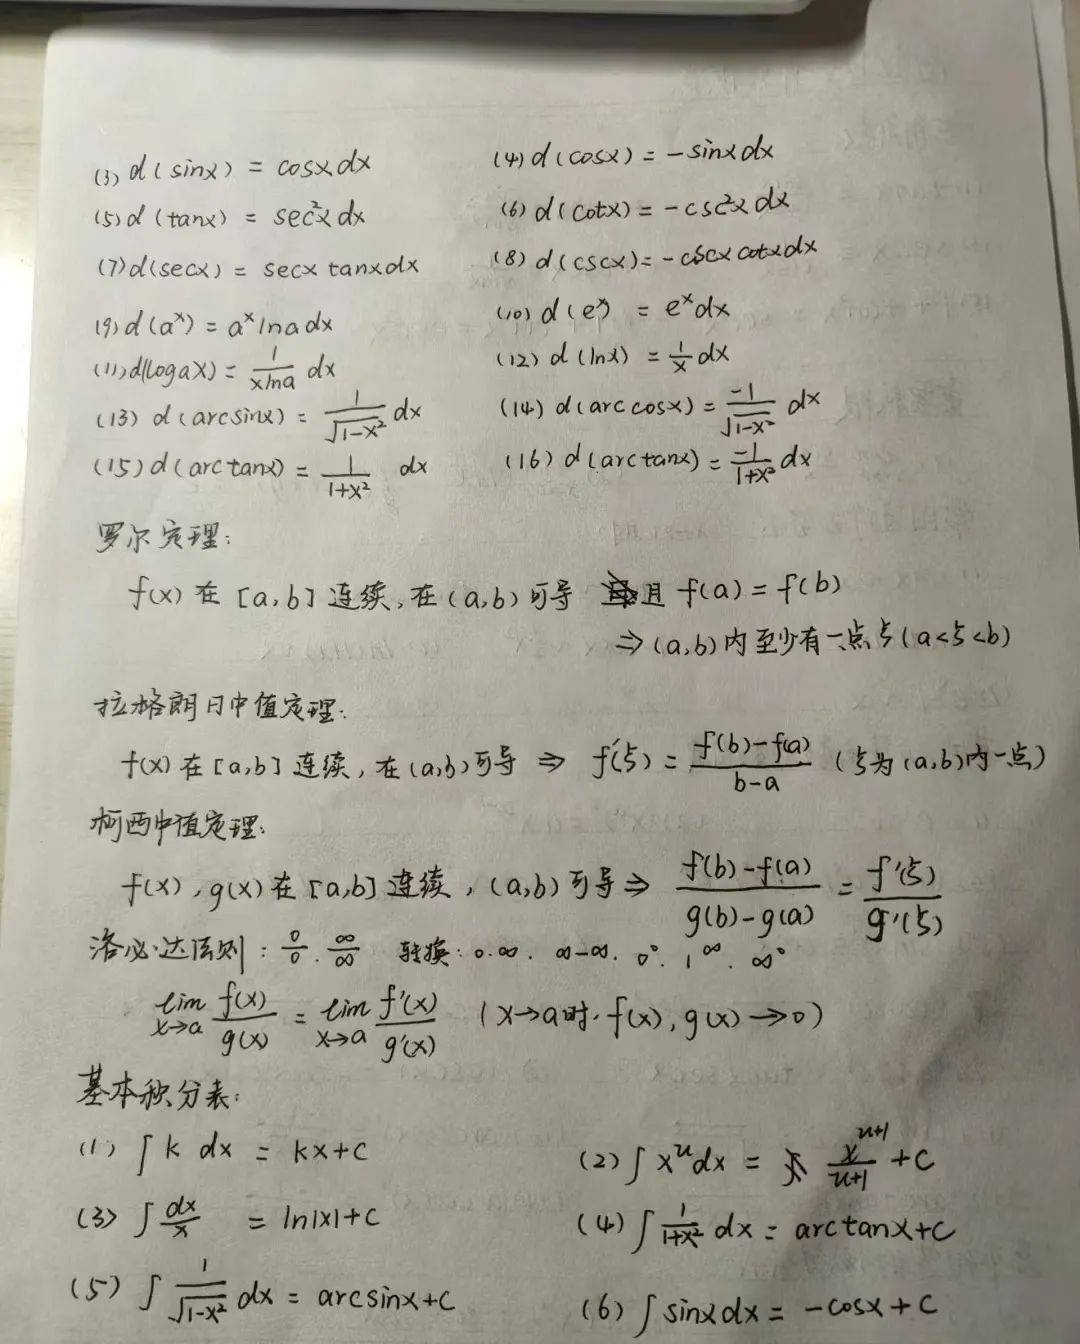 (3) d(sinx) = cosx dx (4) d(cosx) = -sinx dx
(5) d(tanx) = sec²x dx (6) d(cotx) = -csc²x dx
(7) d(secx) = secx tanx dx (8) d(cscx) = -cscx cotx dx
(9) d(aˣ) = aˣ lna dx (10) d(eˣ) = eˣ dx
(11) d(logaX) = 1/(xlna) dx (12) d(lnx) = 1/x dx
(13) d(arcsinx) = 1/√(1-x²) dx (14) d(arccosx) = -1/√(1-x²) dx
(15) d(arctanx) = 1/(1+x²) dx (16) d(arctanx) = -1/(1+x²) dx
罗尔定理:
f(x) 在 [a,b] 连续, 在 (a,b) 可导 且 f(a) = f(b)
⇒ (a,b) 内至少有一点 ξ (a<ξ<b)
拉格朗日中值定理:
f(x) 在 [a,b] 连续, 在 (a,b) 可导 ⇒ f'(ξ) = (f(b)-f(a))/(b-a) (ξ为(a,b)内一点)
柯西中值定理:
f(x), g(x) 在 [a,b] 连续, (a,b) 可导 ⇒ (f(b)-f(a))/(g(b)-g(a)) = f'(ξ)/g'(ξ)
洛必达法则: 0/0. ∞/∞ 转换: 0.∞. ∞-∞. 0⁰. 1^∞. ∞⁰
lim x→a f(x)/g(x) = lim x→a f'(x)/g'(x) (x→a时. f(x), g(x) → 0)
基本积分表:
(1) ∫ k dx = kx+c (2) ∫ x^u dx = x^(u+1)/(u+1) + c
(3) ∫ dx/x = ln|x|+c (4) ∫ 1/(1+x²) dx = arctanx+c
(5) ∫ 1/√(1-x²) dx = arcsinx+c (6) ∫ sinx dx = -cosx + c